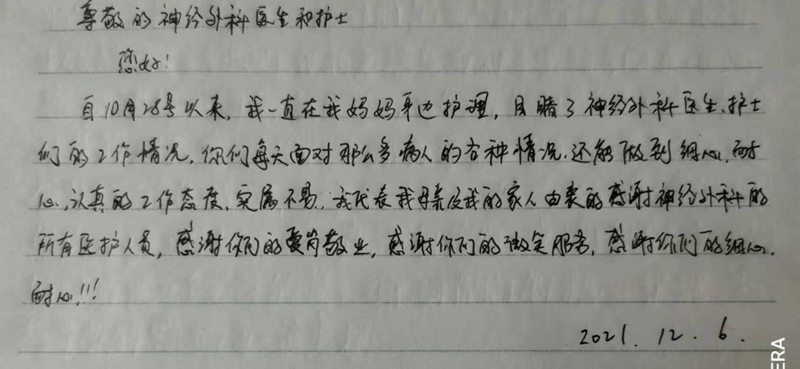 尊敬的神经外科医生和护士
您好!
自10月28号以来,我一直在我妈妈身边护理,目睹了神经外科医生、护士
们的工作情况,你们每天面对那么多病人的各种情况.还能做到细心,耐
心,认真的工作态度,实属不易,我代表我母亲及我的家人由衷的感谢神经外科的
所有医护人员,感谢你们的爱岗敬业,感谢你们的微笑服务,感谢你们的细心.
耐心!!!
2021.12.6.
ERA